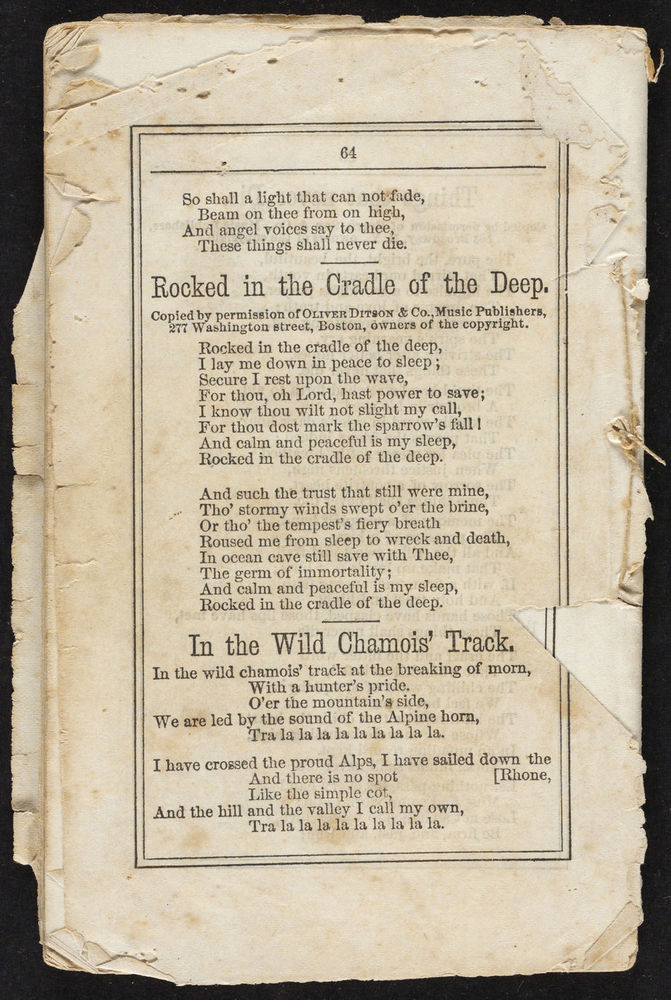 64
So shall a light that can not fade,
Beam on thee from on high,
And angel voices say to thee,
These things shall never die.
Rocked in the Cradle of the Deep.
Copied by permission of OLIVER DITSON & Co., Music Publishers,
277 Washington street, Boston, owners of the copyright.
Rocked in the cradle of the deep,
I lay me down in peace to sleep;
Secure I rest upon the wave,
For thou, oh Lord, hast power to save;
I know thou wilt not slight my call,
For thou dost mark the sparrow's fall!
And calm and peaceful is my sleep,
Rocked in the cradle of the deep.
And such the trust that still were mine,
Tho' stormy winds swept o'er the brine,
Or tho' the tempest's fiery breath
Roused me from sleep to wreck and death,
In ocean cave still save with Thee,
The germ of immortality;
And calm and peaceful is my sleep,
Rocked in the cradle of the deep.
In the Wild Chamois' Track.
In the wild chamois' track at the breaking of morn,
With a hunter's pride.
O'er the mountain's side,
We are led by the sound of the Alpine horn,
Tra la la la la la la la la la.
I have crossed the proud Alps, I have sailed down the
And there is no spot [Rhone,
Like the simple cot,
And the hill and the valley I call my own,
Tra la la la la la la la la la.